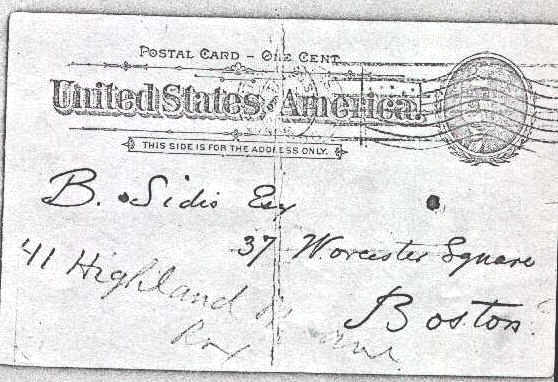 POSTAL CARD - ONE CENT
United States America.
THIS SIDE IS FOR THE ADDRESS ONLY.
B. Sidis Esq
37 Worcester Square
41 Highland
Boston.
Rox